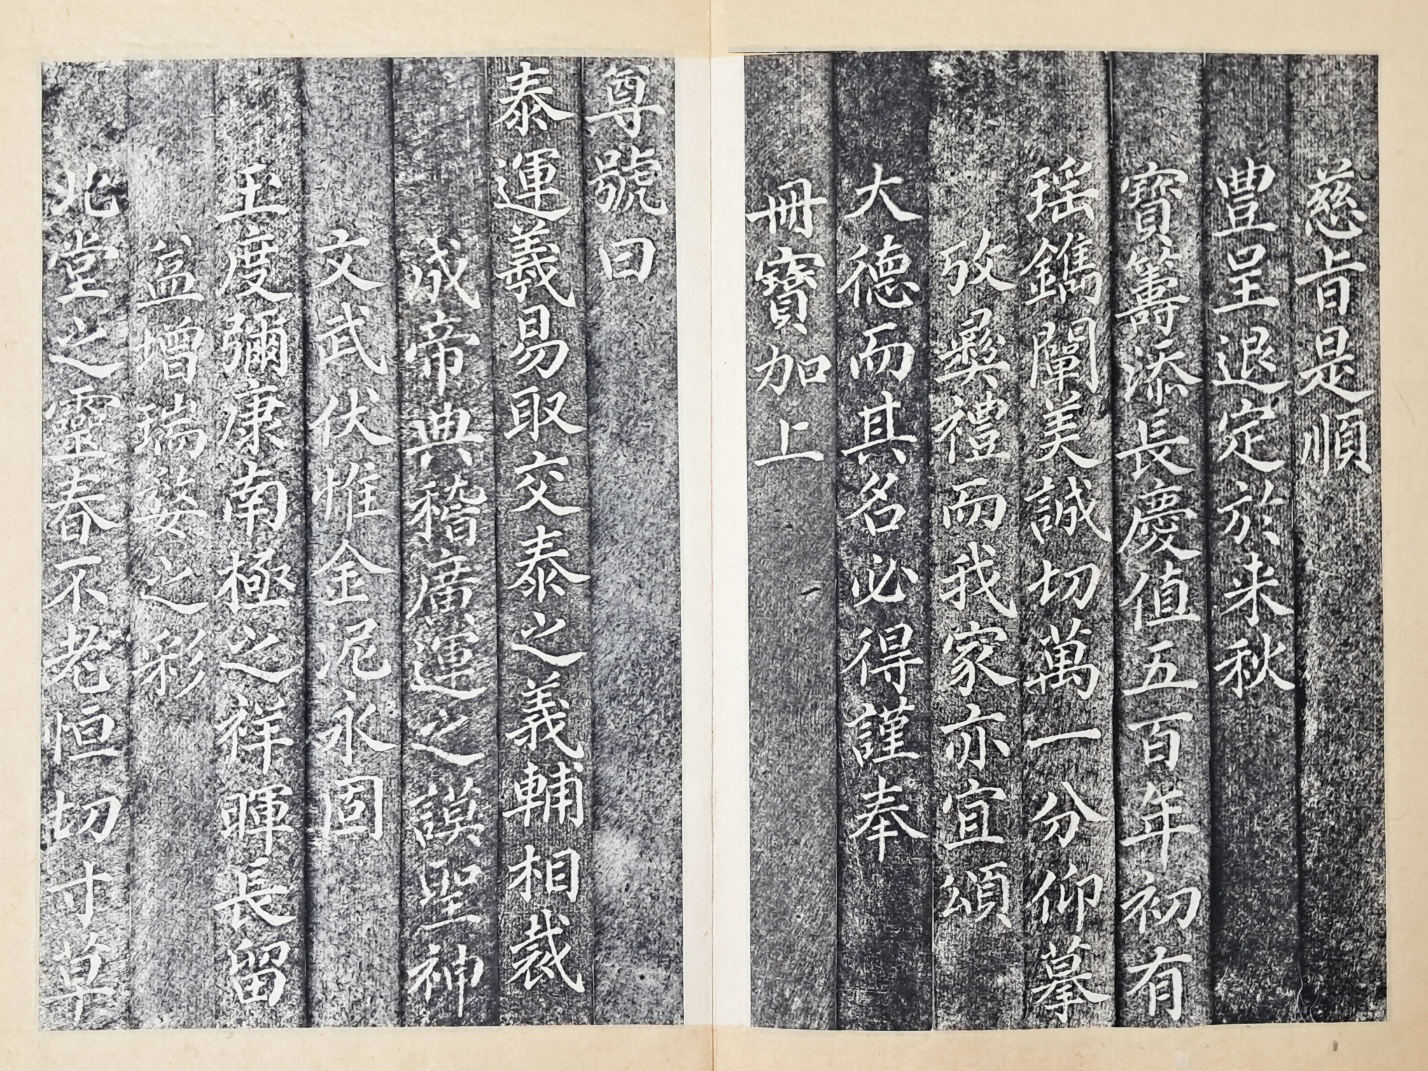 慈旨是順
豊呈退定於来秋
寶籌添長慶值五百年初有
瑶鐫闡美誠切萬一分仰摹
攷彜禮而我家亦宜頌
大德而其名必得謹奉
冊寶加上
尊號曰
泰運羲易取交泰之義輔相裁
成帝典稽廣運之謨聖神
文武伏惟金泥永固
玉度彌康南極之祥暉長留
益增瑞婺之彩
北堂之靈春不老恒切寸草